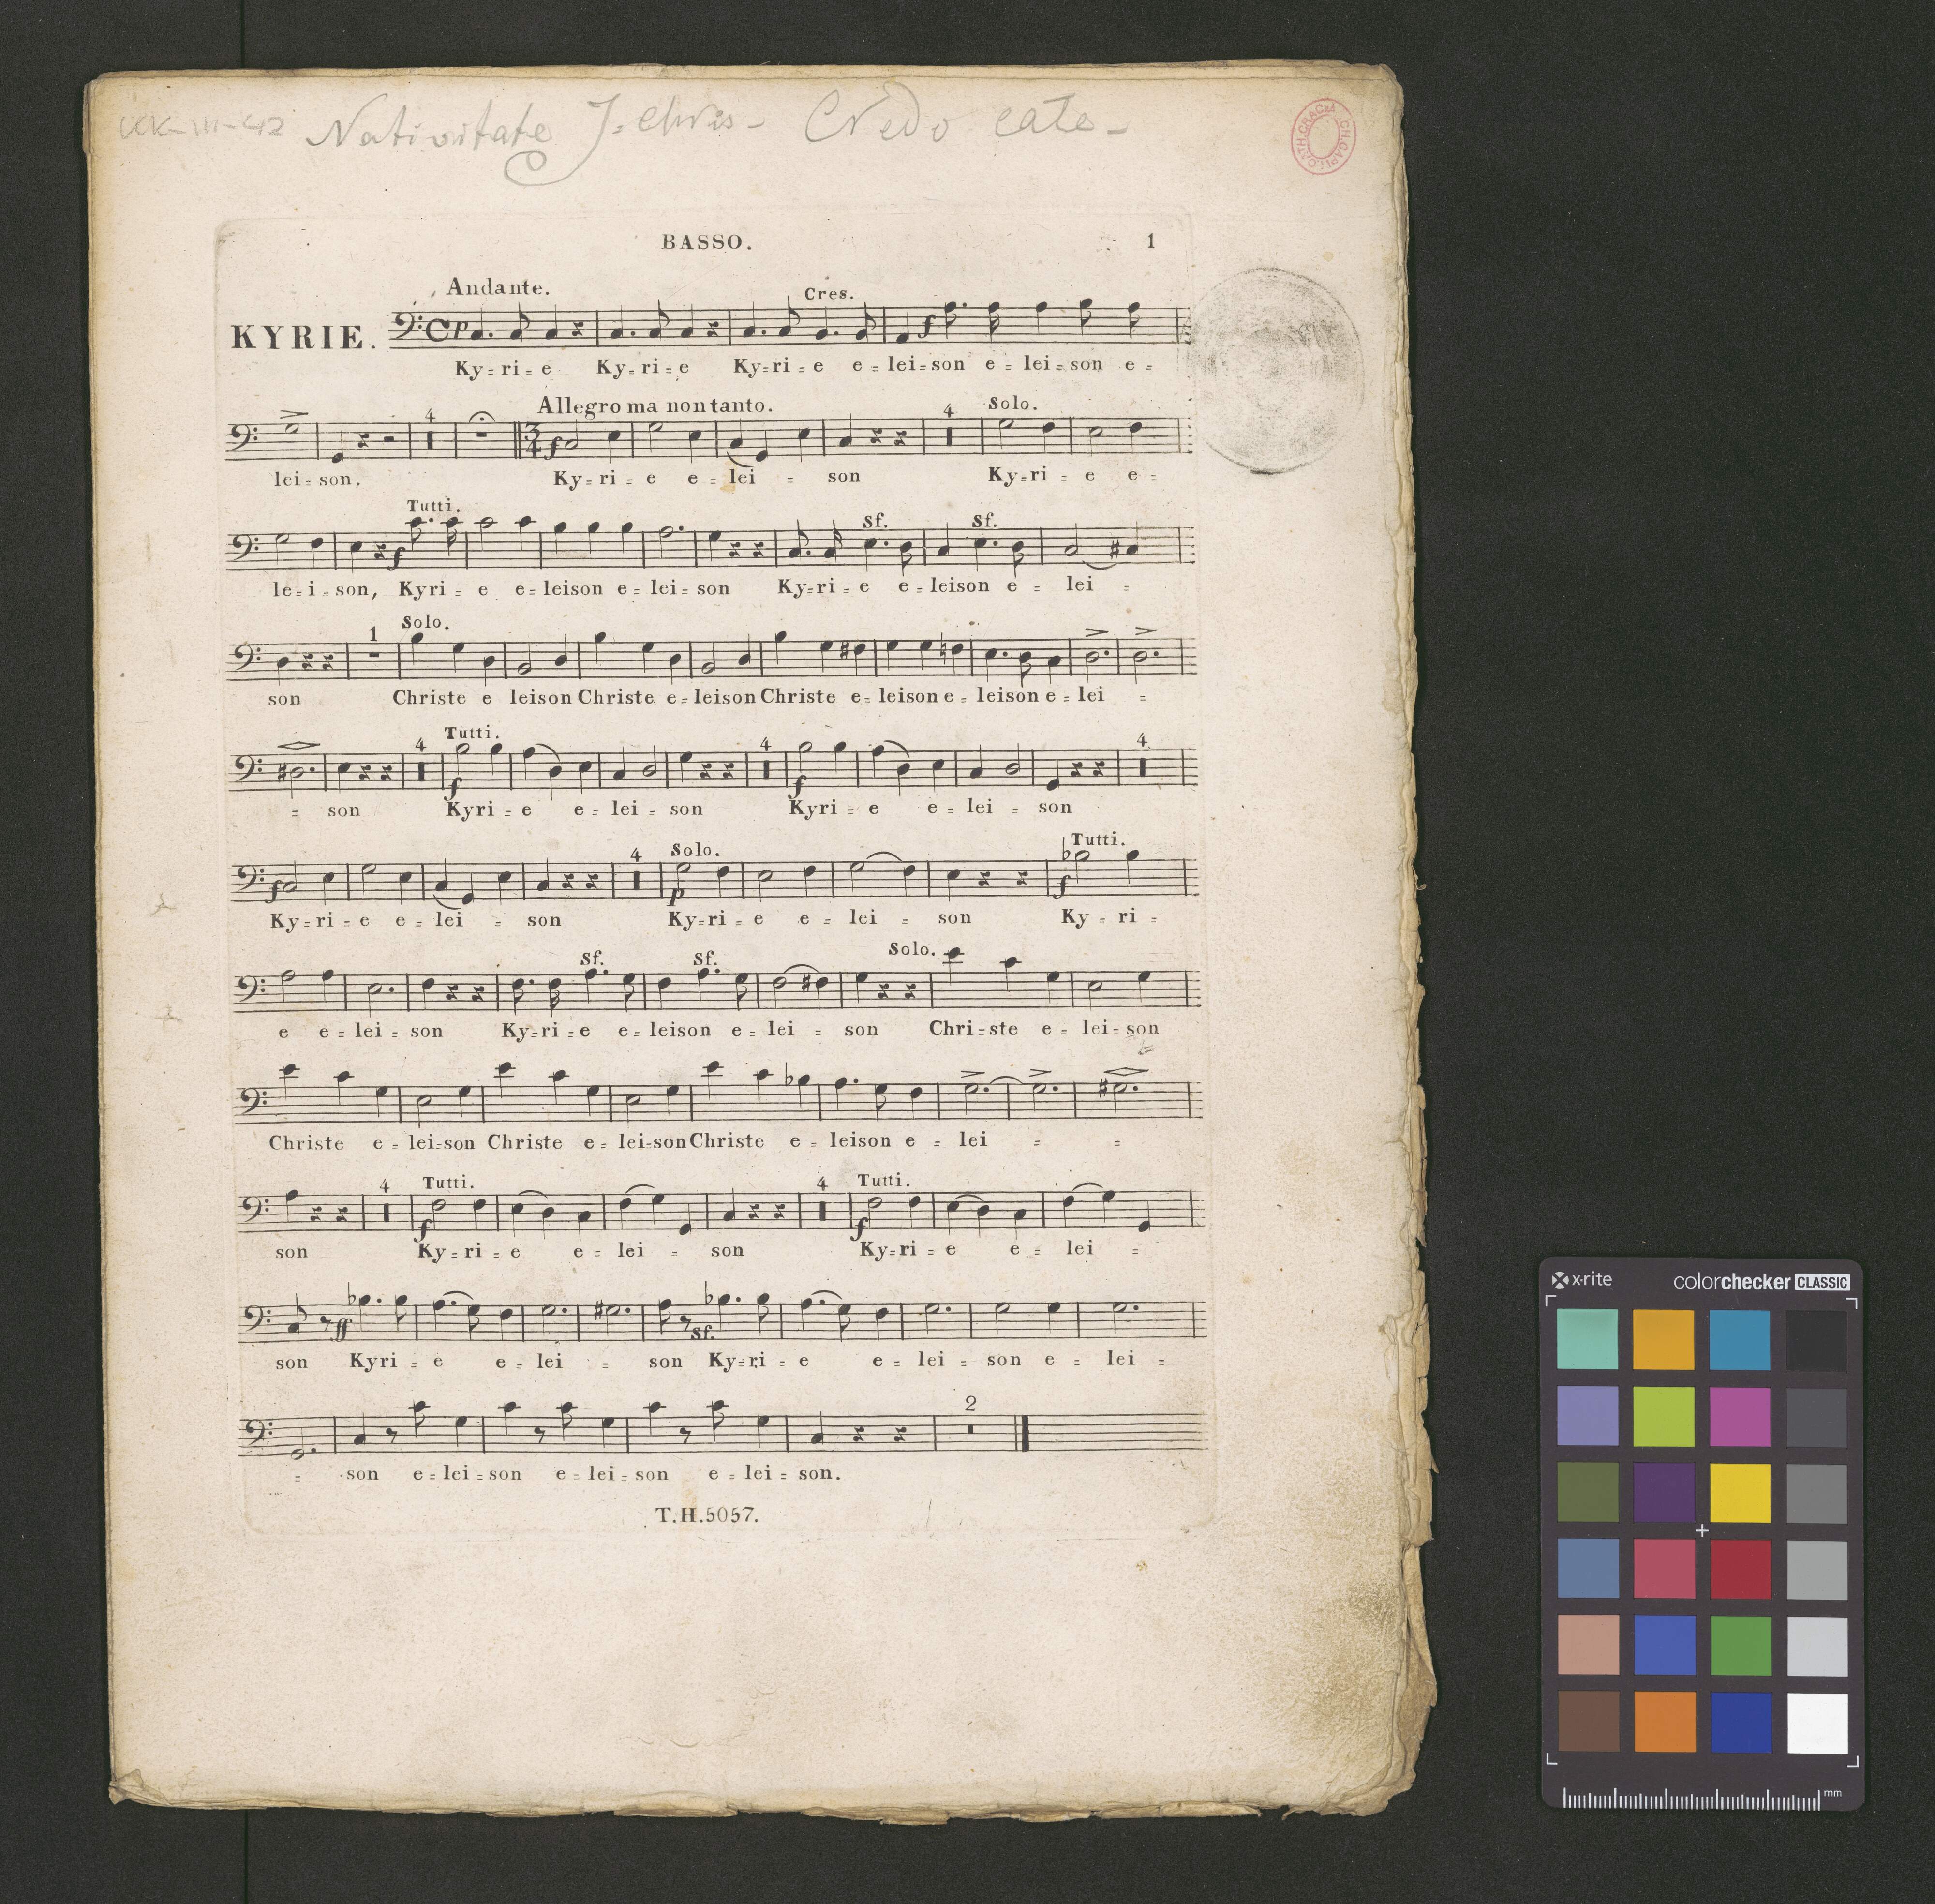 KK-III-42 Nativitate J= Chris- Credo cate-
CH.CAPI.CATH.CRAC.
BASSO. 1
Andante. Cres.
KYRIE. p f
Ky=ri=e Ky=ri=e Ky=ri=e e=lei=son e=lei=son e=
4 Allegro ma non tanto. 4 Solo.
3/4 f
lei=son. Ky=ri=e e=lei=son Ky=ri=e e=
Tutti. Sf. Sf.
f
le=i=son, Kyri=e e=leison e=lei=son Ky=ri=e e=leison e=lei=
1 Solo.
son Christe e leison Christe e=leison Christe e=leison e=leison e=lei=
4 Tutti. 4 4
f f
= son Kyri=e e=lei=son Kyri=e e=lei=son
4 Solo. Tutti.
f p f
Ky=ri=e e=lei=son Ky=ri=e e=lei=son Ky=ri=
Sf. Sf. Solo.
e e=lei=son Ky=ri=e e=leison e=lei=son Chri=ste e=lei=son
Christe e=lei=son Christe e=lei=son Christe e=leison e=lei = =
4 Tutti. 4 Tutti.
f f
son Ky=ri=e e=lei=son Ky=ri=e e=lei=
ff Sf.
son Kyri=e e=lei=son Ky=ri=e e=lei=son e=lei=
2
= son e=lei=son e=lei=son e=lei=son.
T.H.5057.
x-rite colorchecker CLASSIC
mm